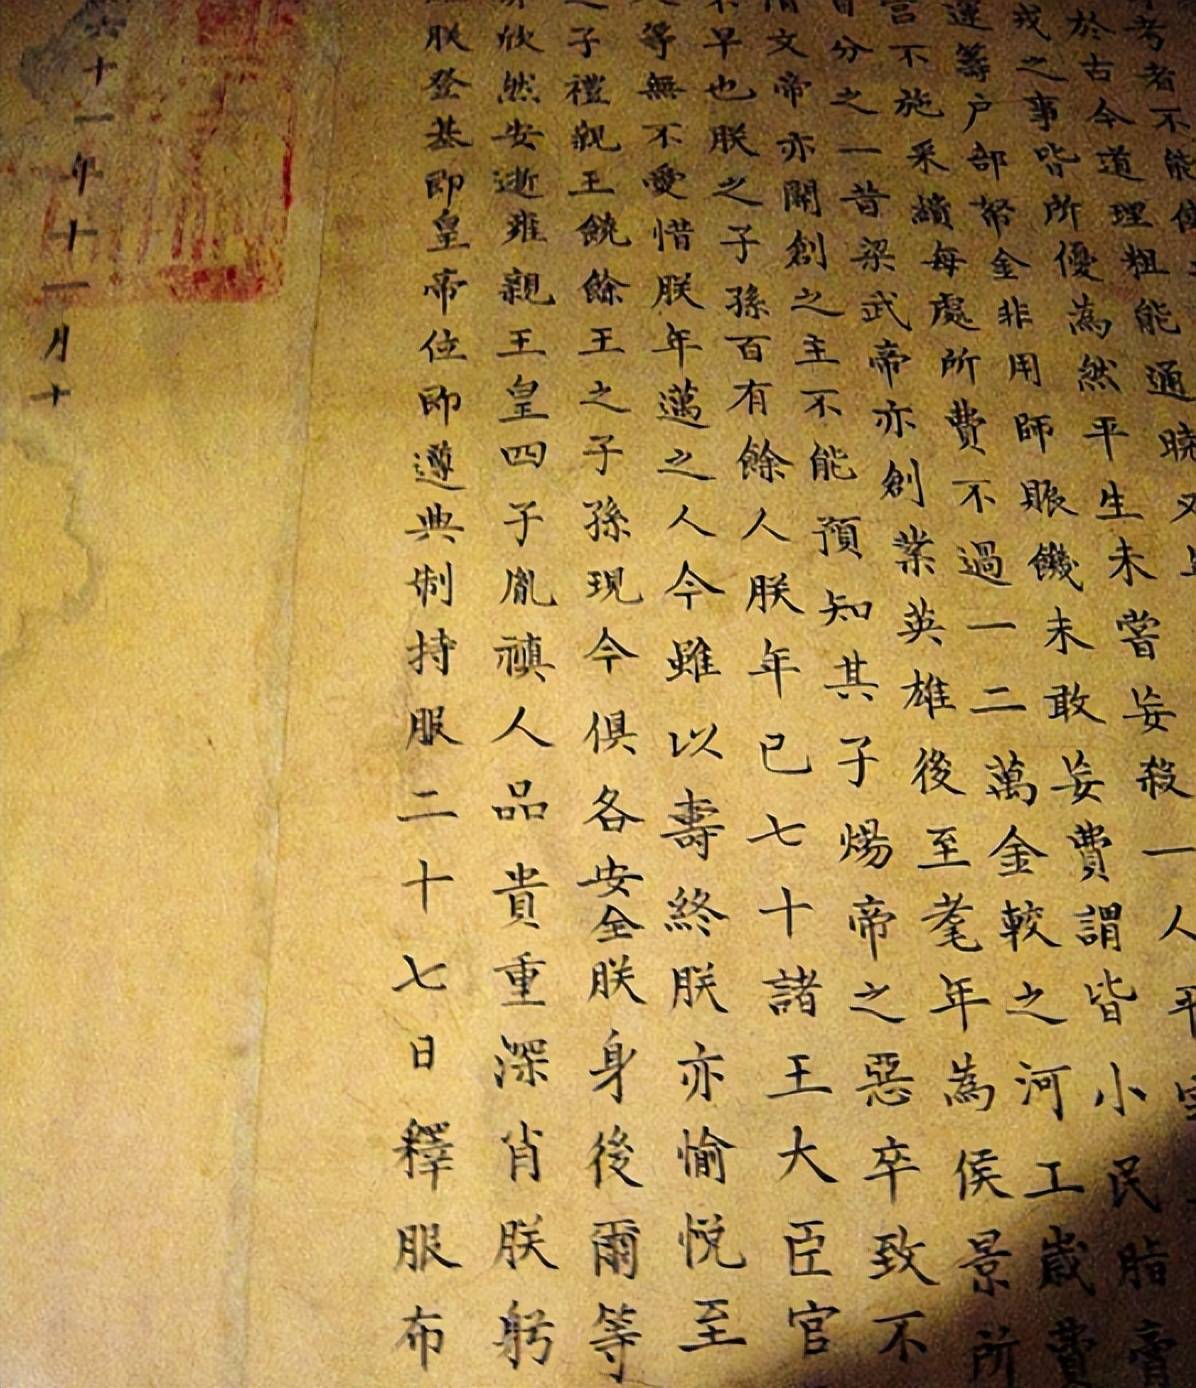 考者不能
於古今道理粗能通曉又
戎之事皆所優為然平生未嘗妄殺一人平
運籌戶部帑金非用師賑饑未敢妄費謂皆小民脂膏
言不施采繢每處所費不過一二萬金較之河工歲費
百分之一昔梁武帝亦創業英雄後至耄年為侯景所
隋文帝亦開創之主不能預知其子煬帝之惡卒致不
不早也朕之子孫百有餘人朕年已七十諸王大臣官
等無不愛惜朕年邁之人今雖以壽終朕亦愉悅至
之子禮親王饒餘王之子孫現今俱各安全朕身後爾等
欣然安逝雍親王皇四子胤禛人品貴重深肖朕躬
朕登基即皇帝位即遵典制持服二十七日釋服布
六十一年十一月十